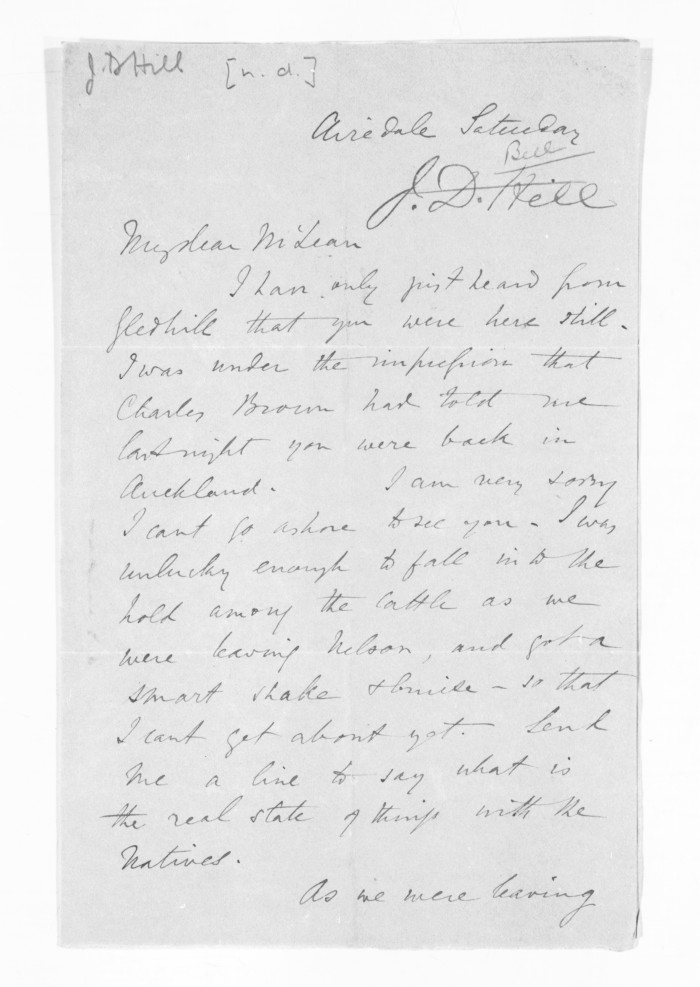 J. D Hill [n. d.]
Airedale Saturday
Bell
J. D. Hill
My dear McLean
I have only just heard from
Gledhill that you were here still.
I was under the impression that
Charles Brown had told me
last night you were back in
Auckland. I am very sorry
I cant go ashore to see you - I was
unlucky enough to fall into the
hold among the cattle as we
were leaving Nelson, and got a
smart shake & bruise - so that
I cant get about yet. Send
me a line to say what is
the real state of things with the
Natives.
As we were leaving